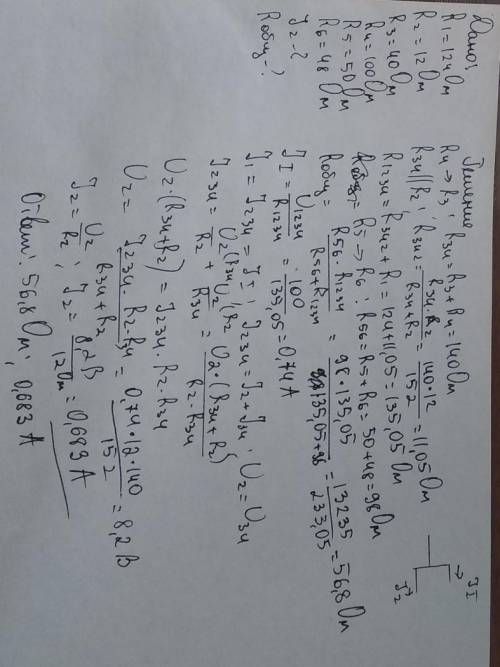 Дано:
R1=124 Ом
R2=12 Ом
R3=40 Ом
R4=100 Ом
R5=50 Ом
R6=48 Ом
J2-?
Rобщ-?
Решение
R4 → R3 ; R34 = R3+R4 = 140 Ом
R34 || R2 ; R342 = R34·R2 / R34+R2 = 140·12 / 152 = 11,05 Ом
R1234 = R342 + R1 = 124+11,05 = 135,05 Ом
R5 → R6 : R56 = R5+R6 = 50+48 = 98 Ом
Rобщ = R56·R1234 / R56+R1234 = 98·135,05 / 135,05+98 = 13235 / 233,05 = 56,8 Ом
JI = U1234 / R1234 = 100 / 135,05 = 0,74 А
J1 = J234 = JI ; J234 = J2 + J34 . U2 = U34
J234 = U2 / R2 + U2 / R34 = U2·(R34+R2) / R2·R34
U2·(R34+R2) = J234·R2·R34
U2 = J234·R2·R34 / R34+R2 = 0,74·12·140 / 152 = 8,2 В
J2 = U2 / R2 ; J2 = 8,2 В / 12 Ом = 0,683 А
Ответ: 56,8 Ом ; 0,683 А
JI
J2